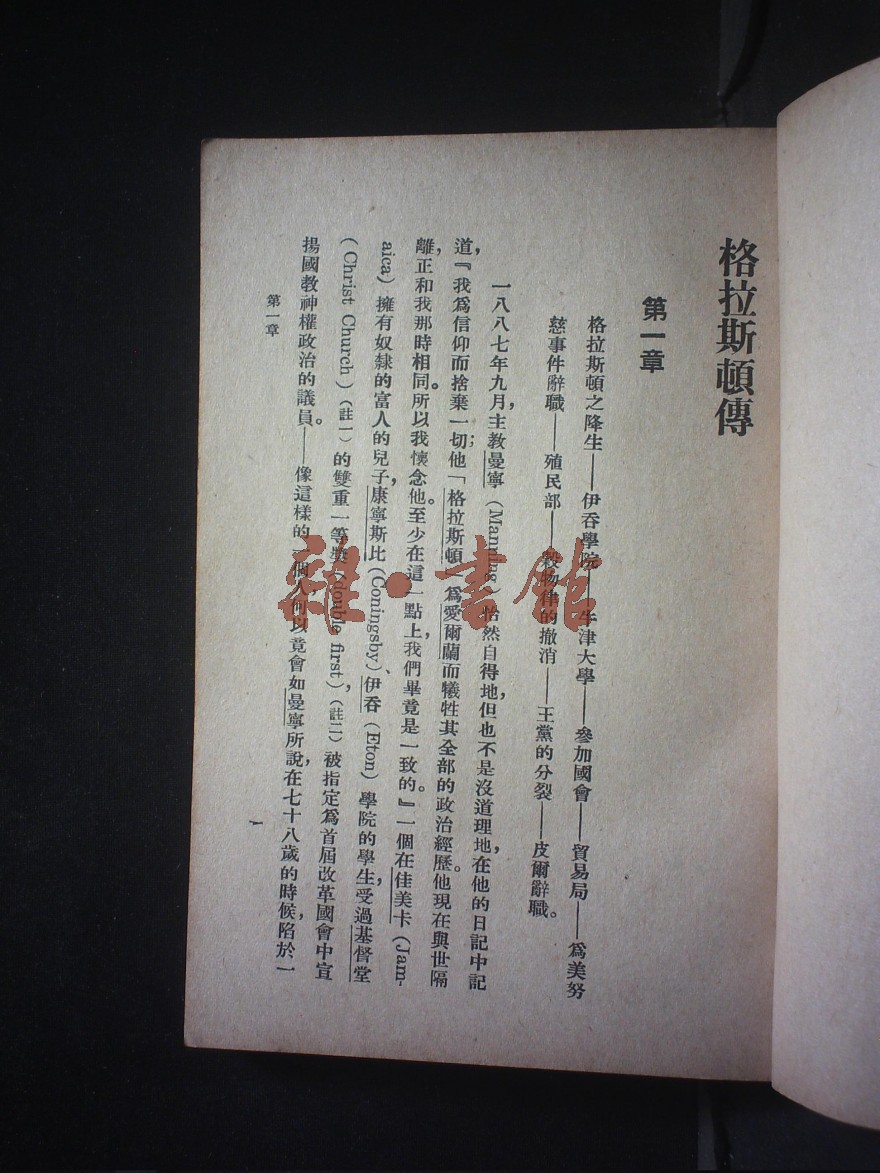 格拉斯頓傳
第一章
格拉斯頓之降生——伊吞學院——牛津大學——參加國會——貿易局——爲美努
慈事件辭職——殖民部——穀物律的撤消——王黨的分裂——皮爾辭職。
一八八七年九月，主教曼寧（Manning）怡然自得地，但也不是沒道理地，在他的日記中記
道，『我爲信仰而捨棄一切；他「格拉斯頓」爲愛爾蘭而犧牲其全部的政治經歷。他現在與世隔
離，正和我那時相同。所以我懷念他。至少在這一點上，我們畢竟是一致的。』一個在佳美卡（Jam-
aica）擁有奴隸的富人的兒子，康寧斯比（Coningsby）、伊吞（Eton）學院的學生，受過基督堂
（Christ Church）（註一）的雙重一等獎（double first）（註二），被指定爲首屆改革國會中宣
揚國教神權政治的議員。——像這樣的一個人何以竟會如曼寧所說，在七十八歲的時候，陷於一
第一章
一
雜·書館